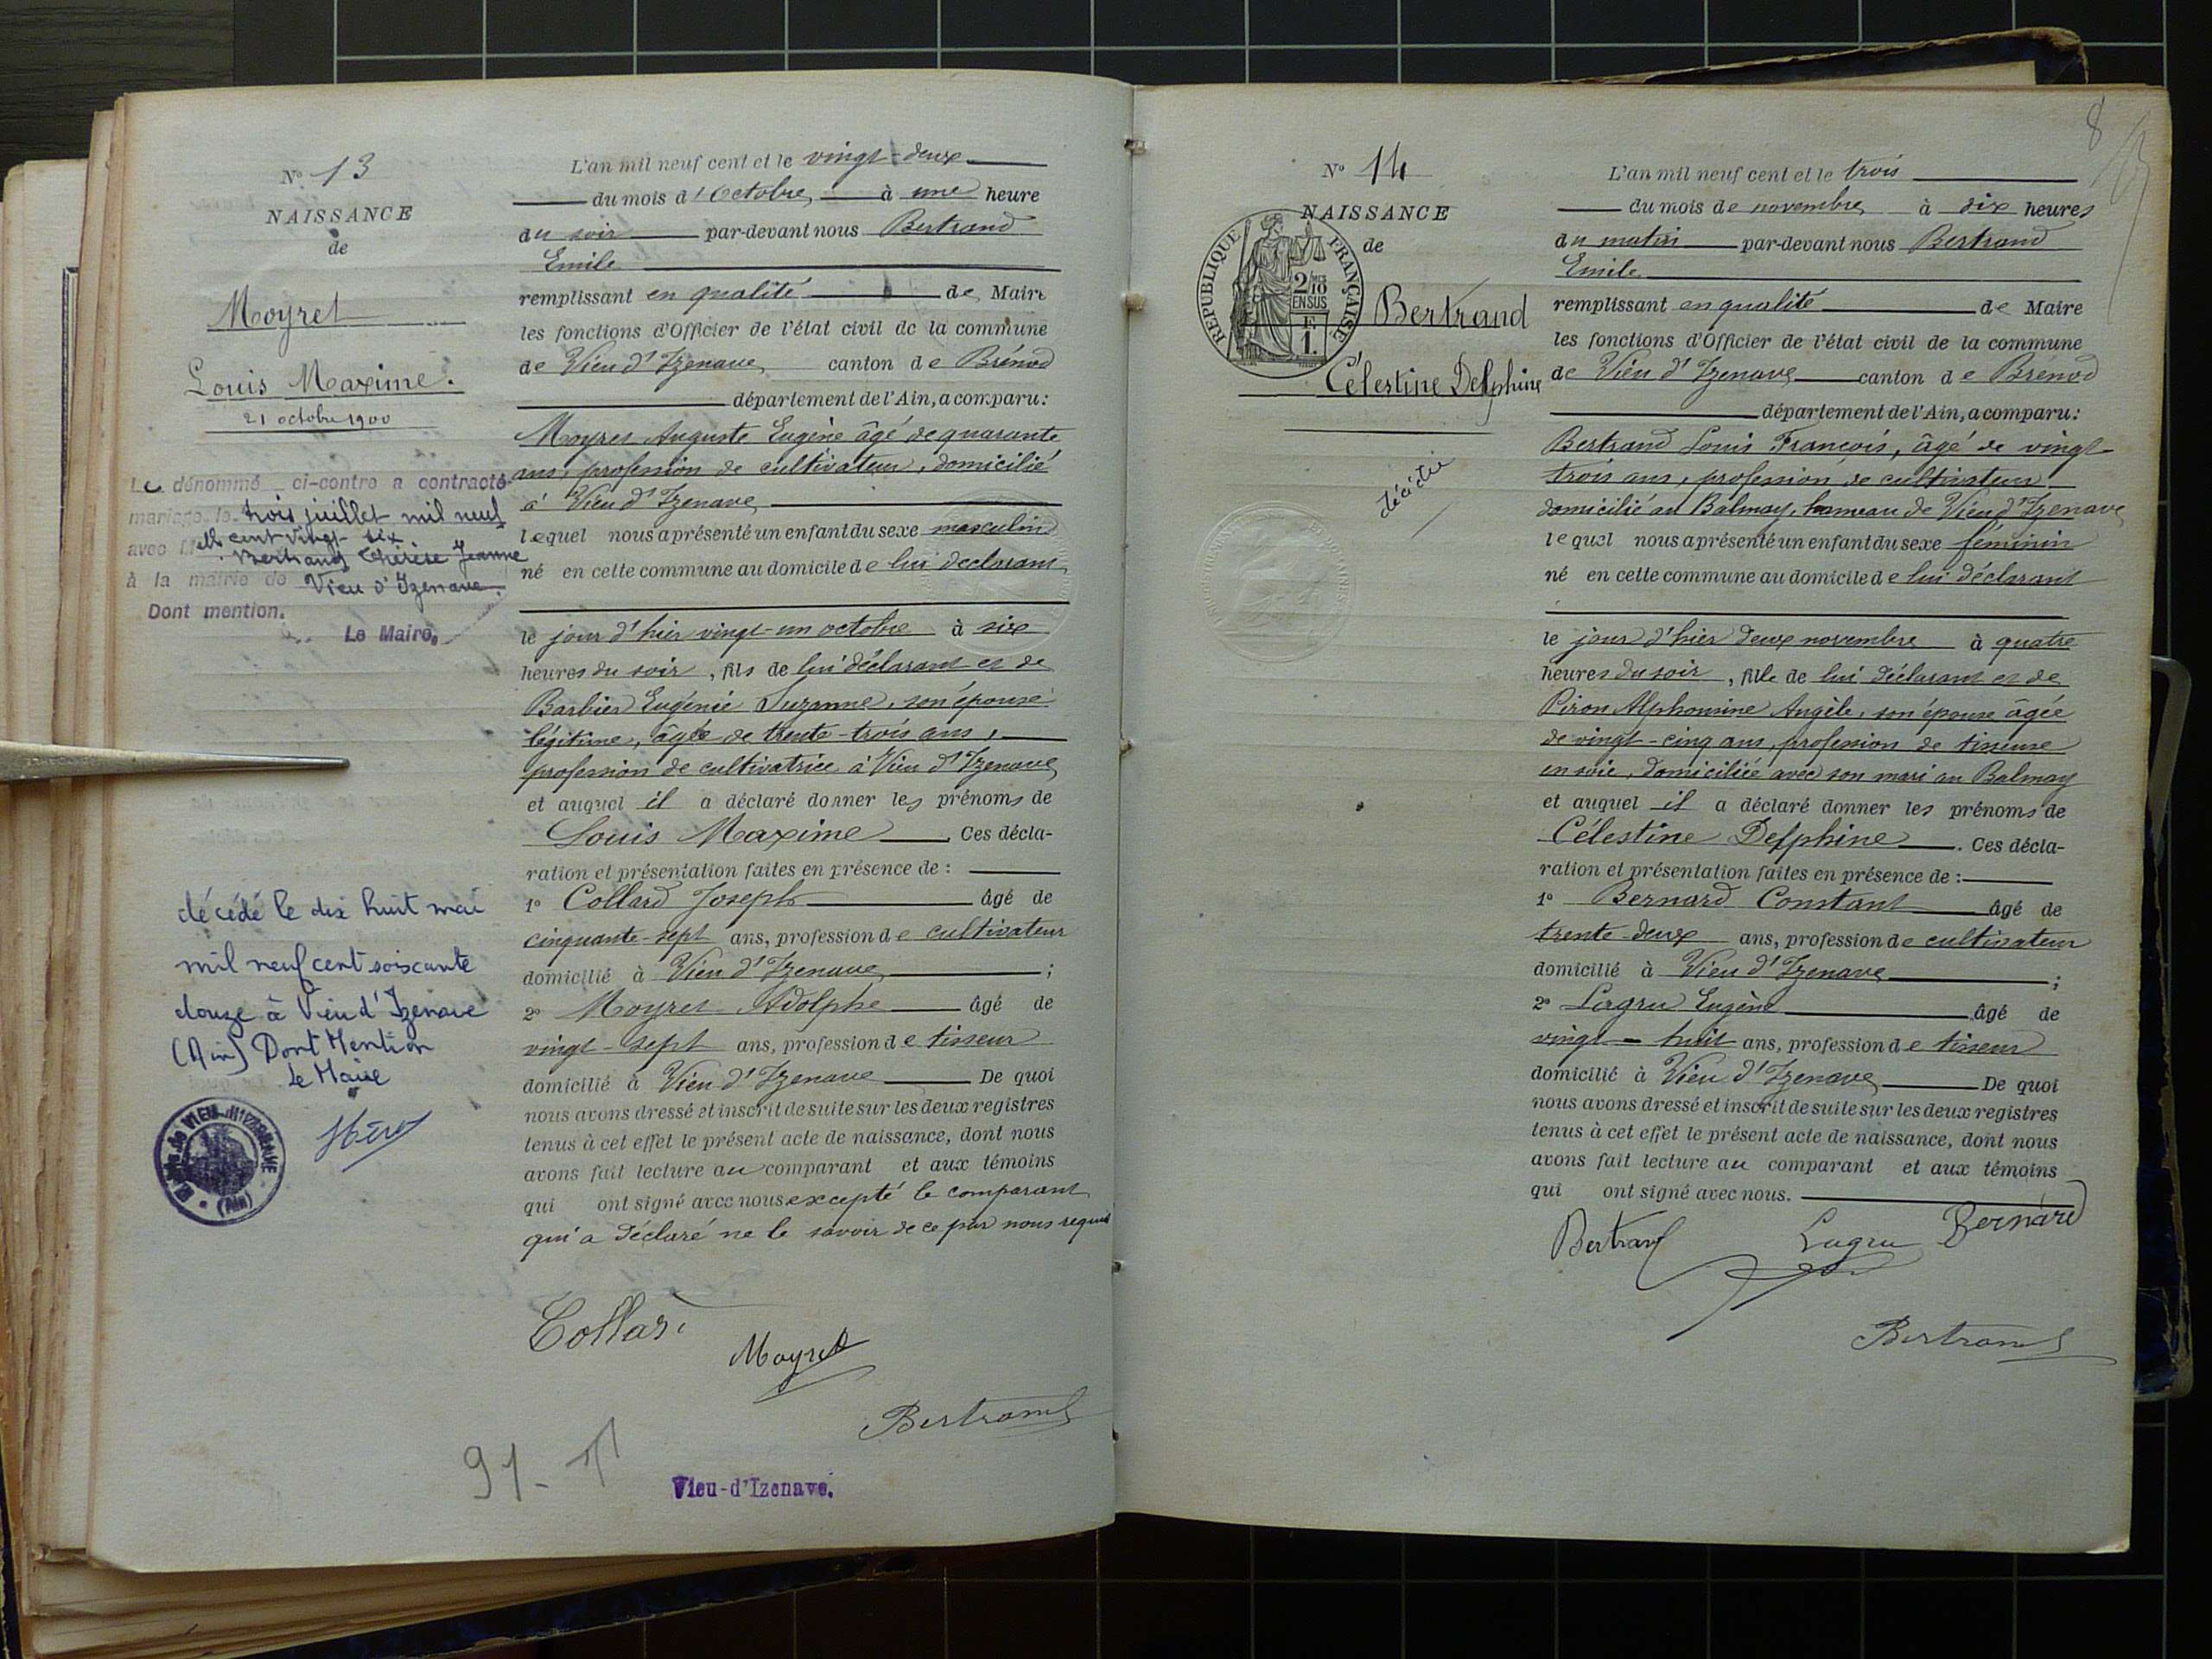 N° 13
NAISSANCE
de
Moyret
Louis Maxime.
21 octobre 1900
Le dénommé ci-contre a contracté
mariage le trois juillet mil neuf
cent vingt-six
avec Melle Bertrand Thérèse Jeanne
à la mairie de Vieu d'Izenave.
Dont mention.
Le Maire,
décédé le dix huit mai
mil neuf cent soixante
douze à Vieu d'Izenave
(Ain) Dont Mention
Le Maire
Mairie de VIEU-D'IZENAVE
(Ain)
L'an mil neuf cent et le vingt-deux
du mois d'Octobre, à une heure
du soir par-devant nous Bertrand
Emile
remplissant en qualité de Maire
les fonctions d'Officier de l'état civil de la commune
de Vieu d'Izenave, canton de Brénod
département de l'Ain, a comparu:
Moyret Auguste Eugène âgé de quarante
ans, profession de cultivateur, domicilié
à Vieu d'Izenave
lequel nous a présenté un enfant du sexe masculin
né en cette commune au domicile de lui déclarant,
le jour d'hier vingt-un octobre à six
heures du soir, fils de lui déclarant et de
Barbier Eugénie Suzanne, son épouse
légitime, âgée de trente-trois ans,
profession de cultivatrice à Vieu d'Izenave
et auquel il a déclaré donner les prénoms de
Louis Maxime. Ces décla-
ration et présentation faites en présence de :
1° Collard Joseph âgé de
cinquante-sept ans, profession de cultivateur
domicilié à Vieu d'Izenave ;
2° Moyret Adolphe âgé de
vingt-sept ans, profession de tisseur
domicilié à Vieu d'Izenave De quoi
nous avons dressé et inscrit de suite sur les deux registres
tenus à cet effet le présent acte de naissance, dont nous
avons fait lecture au comparant et aux témoins
qui ont signé avec nous excepté le comparant
qui a déclaré ne le savoir de ce par nous requis
Collard
Moyret
Bertrand
91-
Vieu-d'Izenave.
8
N° 14
NAISSANCE
de
REPUBLIQUE FRANÇAISE
2/10 ENSUS
1.
Bertrand
Célestine Delphine
décédée
L'an mil neuf cent et le trois
du mois de novembre à dix heures
du matin par-devant nous Bertrand
Emile
remplissant en qualité de Maire
les fonctions d'Officier de l'état civil de la commune
de Vieu d'Izenave canton de Brénod
département de l'Ain, a comparu:
Bertrand Louis François, âgé de vingt-
trois ans, profession de cultivateur
domicilié au Balmay, hameau de Vieu d'Izenave
lequel nous a présenté un enfant du sexe féminin
né en cette commune au domicile de lui déclarant
le jour d'hier deux novembre à quatre
heures du soir, fille de lui déclarant et de
Piron Alphonsine Angèle, son épouse âgée
de vingt-cinq ans, profession de tisseuse
en soie, domiciliée avec son mari au Balmay
et auquel il a déclaré donner les prénoms de
Célestine Delphine. Ces décla-
ration et présentation faites en présence de :
1° Bernard Constant âgé de
trente-deux ans, profession de cultivateur
domicilié à Vieu d'Izenave ;
2° Lagru Eugène âgé de
vingt-huit ans, profession de tisseur
domicilié à Vieu d'Izenave De quoi
nous avons dressé et inscrit de suite sur les deux registres
tenus à cet effet le présent acte de naissance, dont nous
avons fait lecture au comparant et aux témoins
qui ont signé avec nous.
Bertrand Lagru Bernard
Bertrand